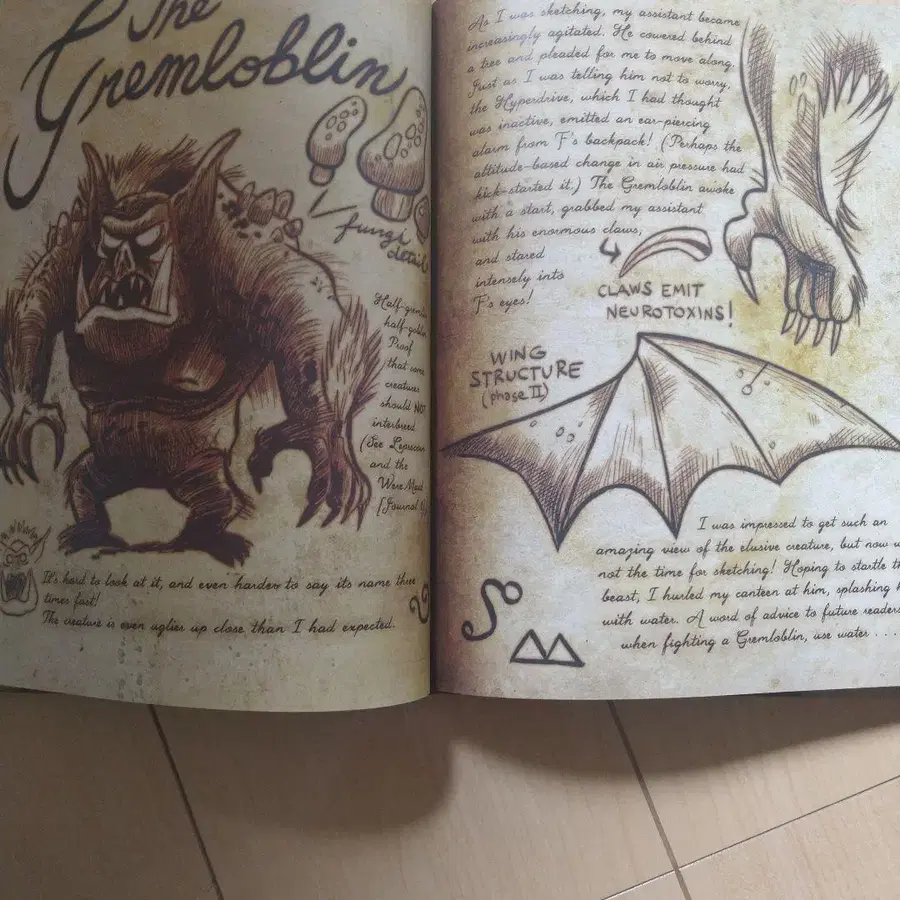 The
Gremloblin
fungi
detail
Half-gremlin
half-goblin
Proof
that some
creatures
should NOT
interbreed
(See Leprecorn
and the
Were
[Journal
It's hard to look at it, and even harder to say its name three
times fast!
The creature is even uglier up close than I had expected.
As I was sketching, my assistant became
increasingly agitated. He cowered behind
a tree and pleaded for me to move along.
Just as I was telling him not to worry,
the Hyperdrive, which I had thought
was inactive, emitted an ear-piercing
alarm from F's backpack! (Perhaps the
altitude-based change in air pressure had
kick-started it.) The Gremloblin awoke
with a start, grabbed my assistant
with his enormous claws,
and stared
intensely into
F's eyes!
CLAWS EMIT
NEUROTOXINS!
WING
STRUCTURE
(phase II)
I was impressed to get such an
amazing view of the elusive creature, but now w
not the time for sketching! Hoping to startle th
beast, I hurled my canteen at him, splashing h
with water. A word of advice to future readers
when fighting a Gremloblin, use water . . .